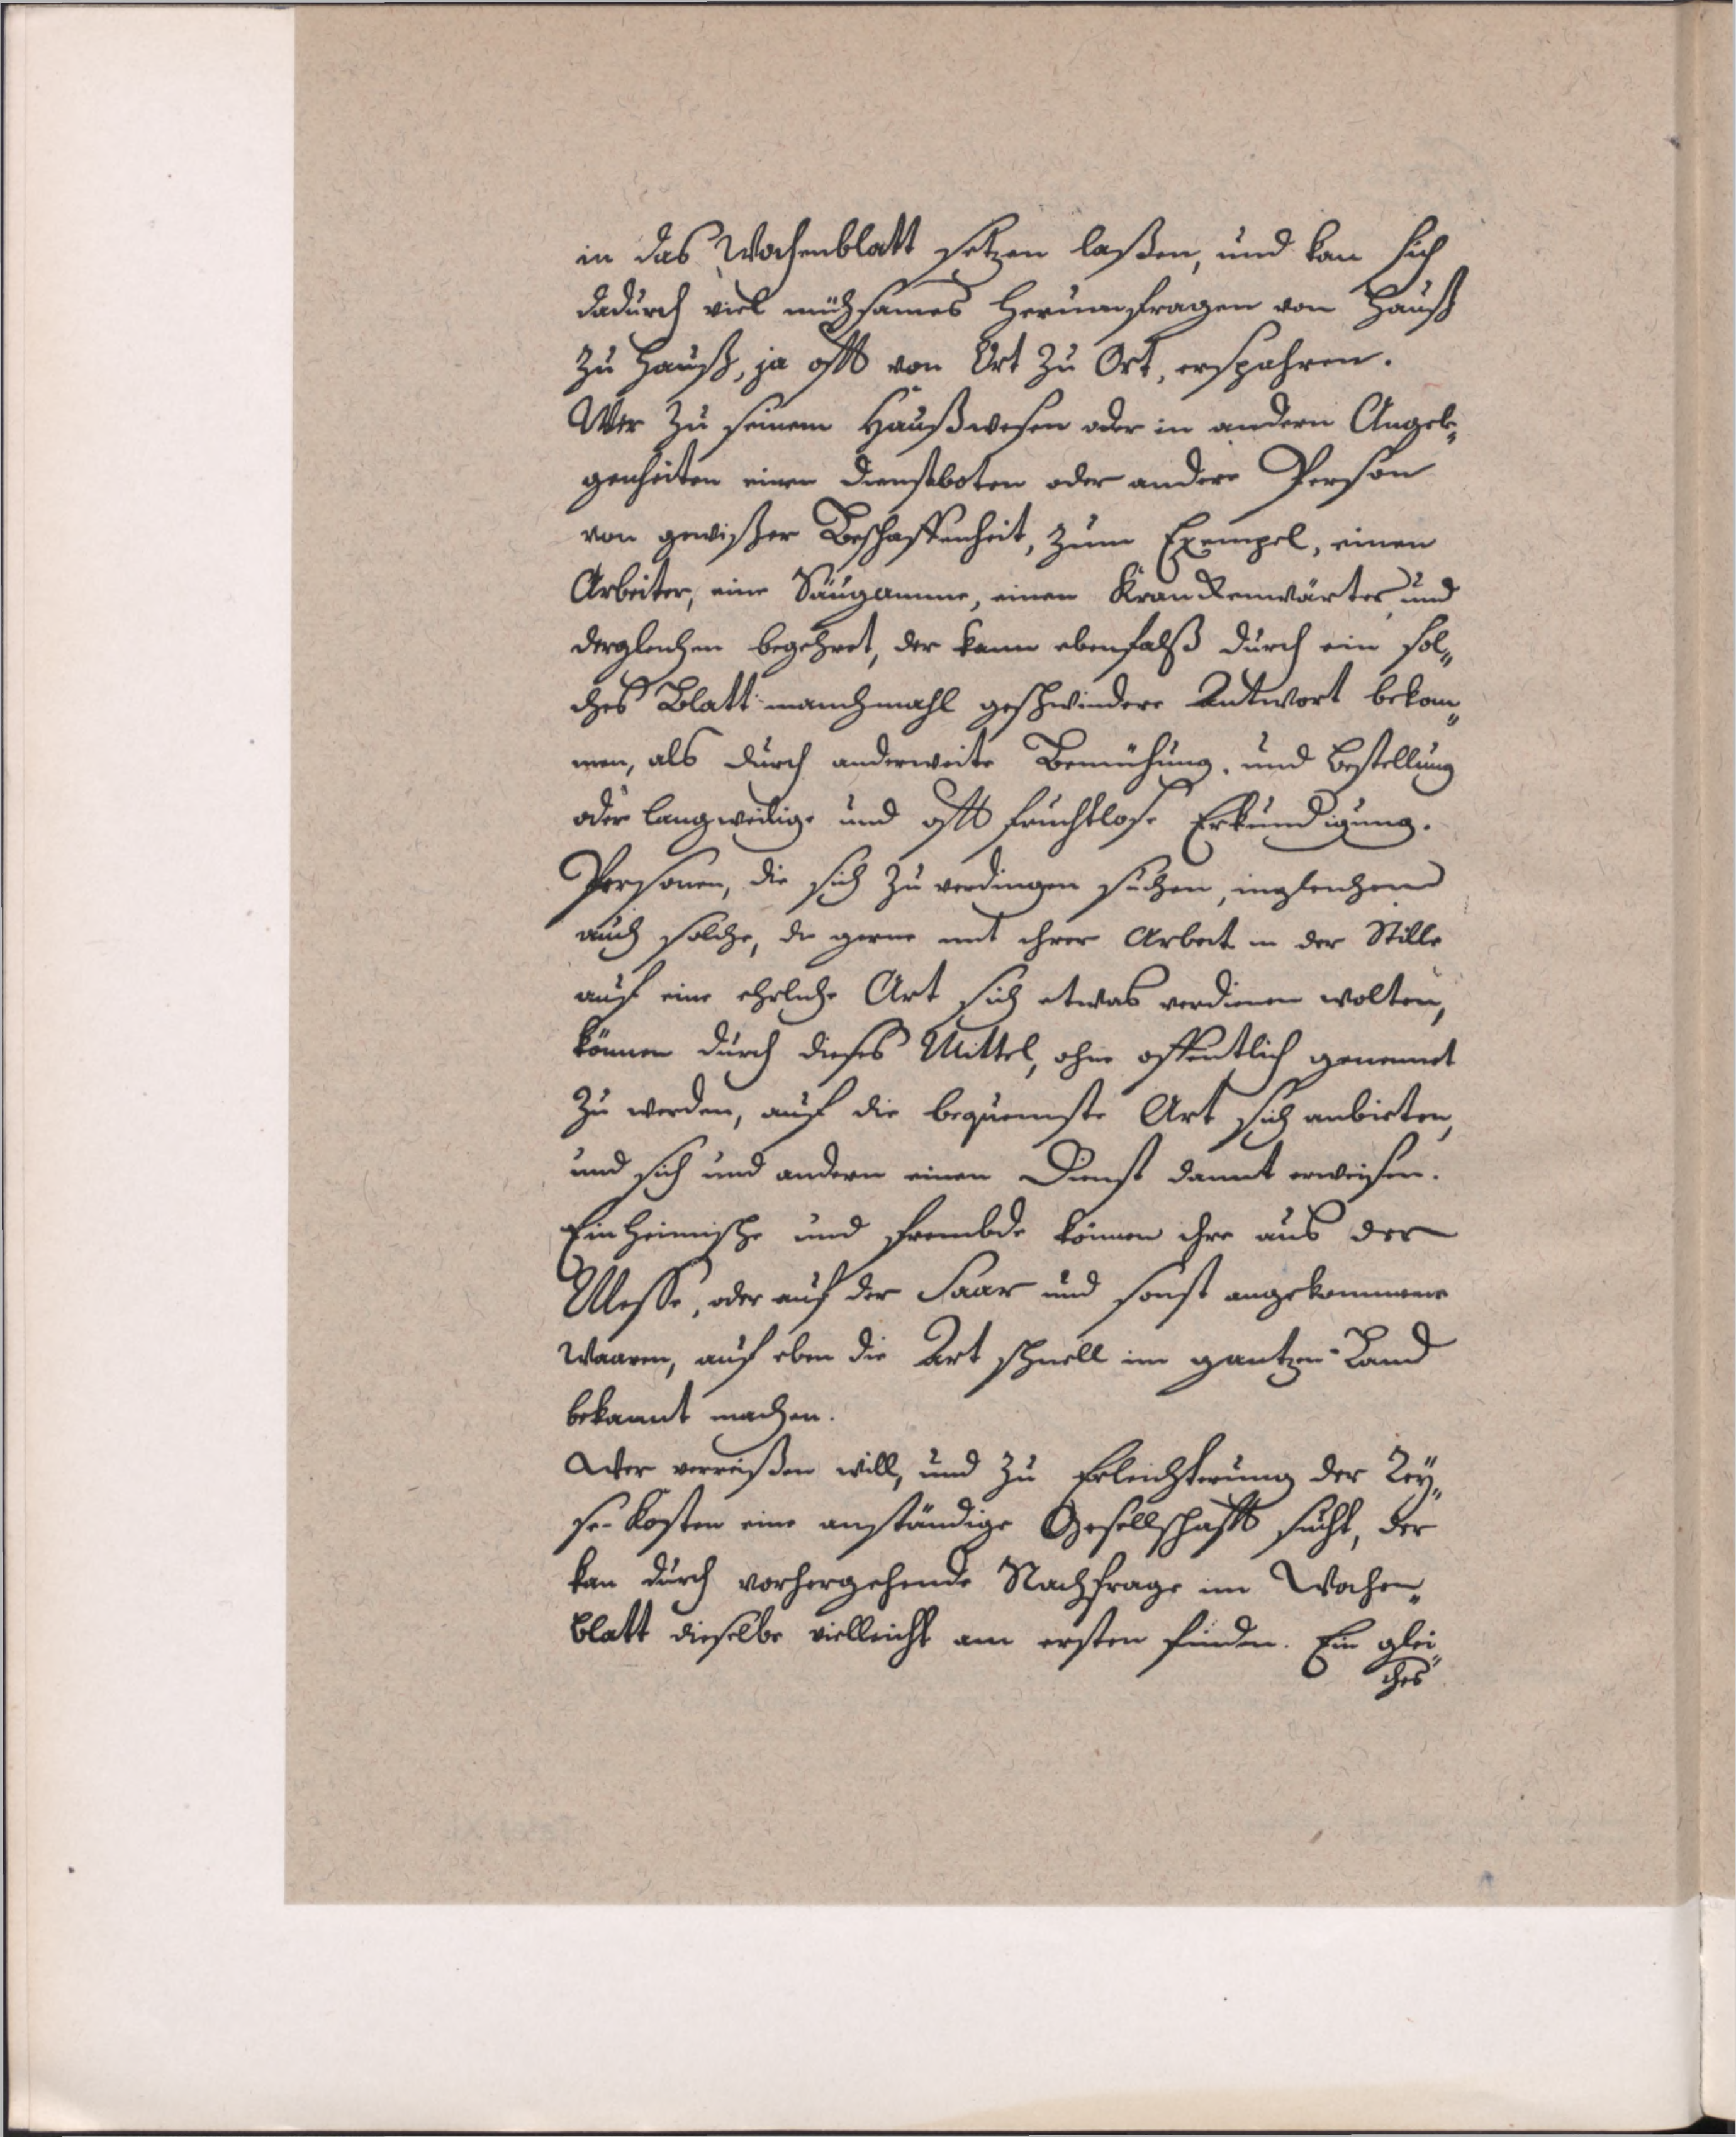 in das Wochenblatt setzen laßen, und kan sich
dadurch viel mühsames herumfragen von Hauß
zu Hauß, ja offt von Ort zu Ort, erspahren.
Wer zu seinem Haußwesen oder in andern Angele„
genheiten einen dienstboten oder andere Person
von gewißer Beschaffenheit, zum Exempel, einen
Arbeiter, eine Säugamme, einen Kranckenwärter und
dergleichen begehret, der kann ebenfalß durch ein sol„
ches Blatt manchmahl geschwindere Antwort bekom„
men, als durch anderweite Bemühung, und Bestellung
oder langweilige und offt fruchtlose Erkundigung.
Personen, die sich zu verdingen suchen, ingleichen
auch solche, die gerne mit ihrer Arbeit in der Stille
auf eine ehrliche Art sich etwas verdienen wolten,
können durch dieses Mittel, ohne offentlich genennet
zu werden, auf die bequemste Art sich anbieten,
und sich und andern einen Dienst damit erweisen.
Einheimische und frembde können ihre aus der
Messe, oder auf der Saar und sonst angekommene
Waaren, auf eben die Art schnell im gantzen Land
bekannt machen.
Wer verreißen will, und zu Erleichterung der Rey„
se-Kosten eine anständige Gesellschafft sucht, der
kan durch vorhergehende Nachfrage im Wochen„
blatt dieselbe vielleicht am ersten finden. Ein glei„
ches